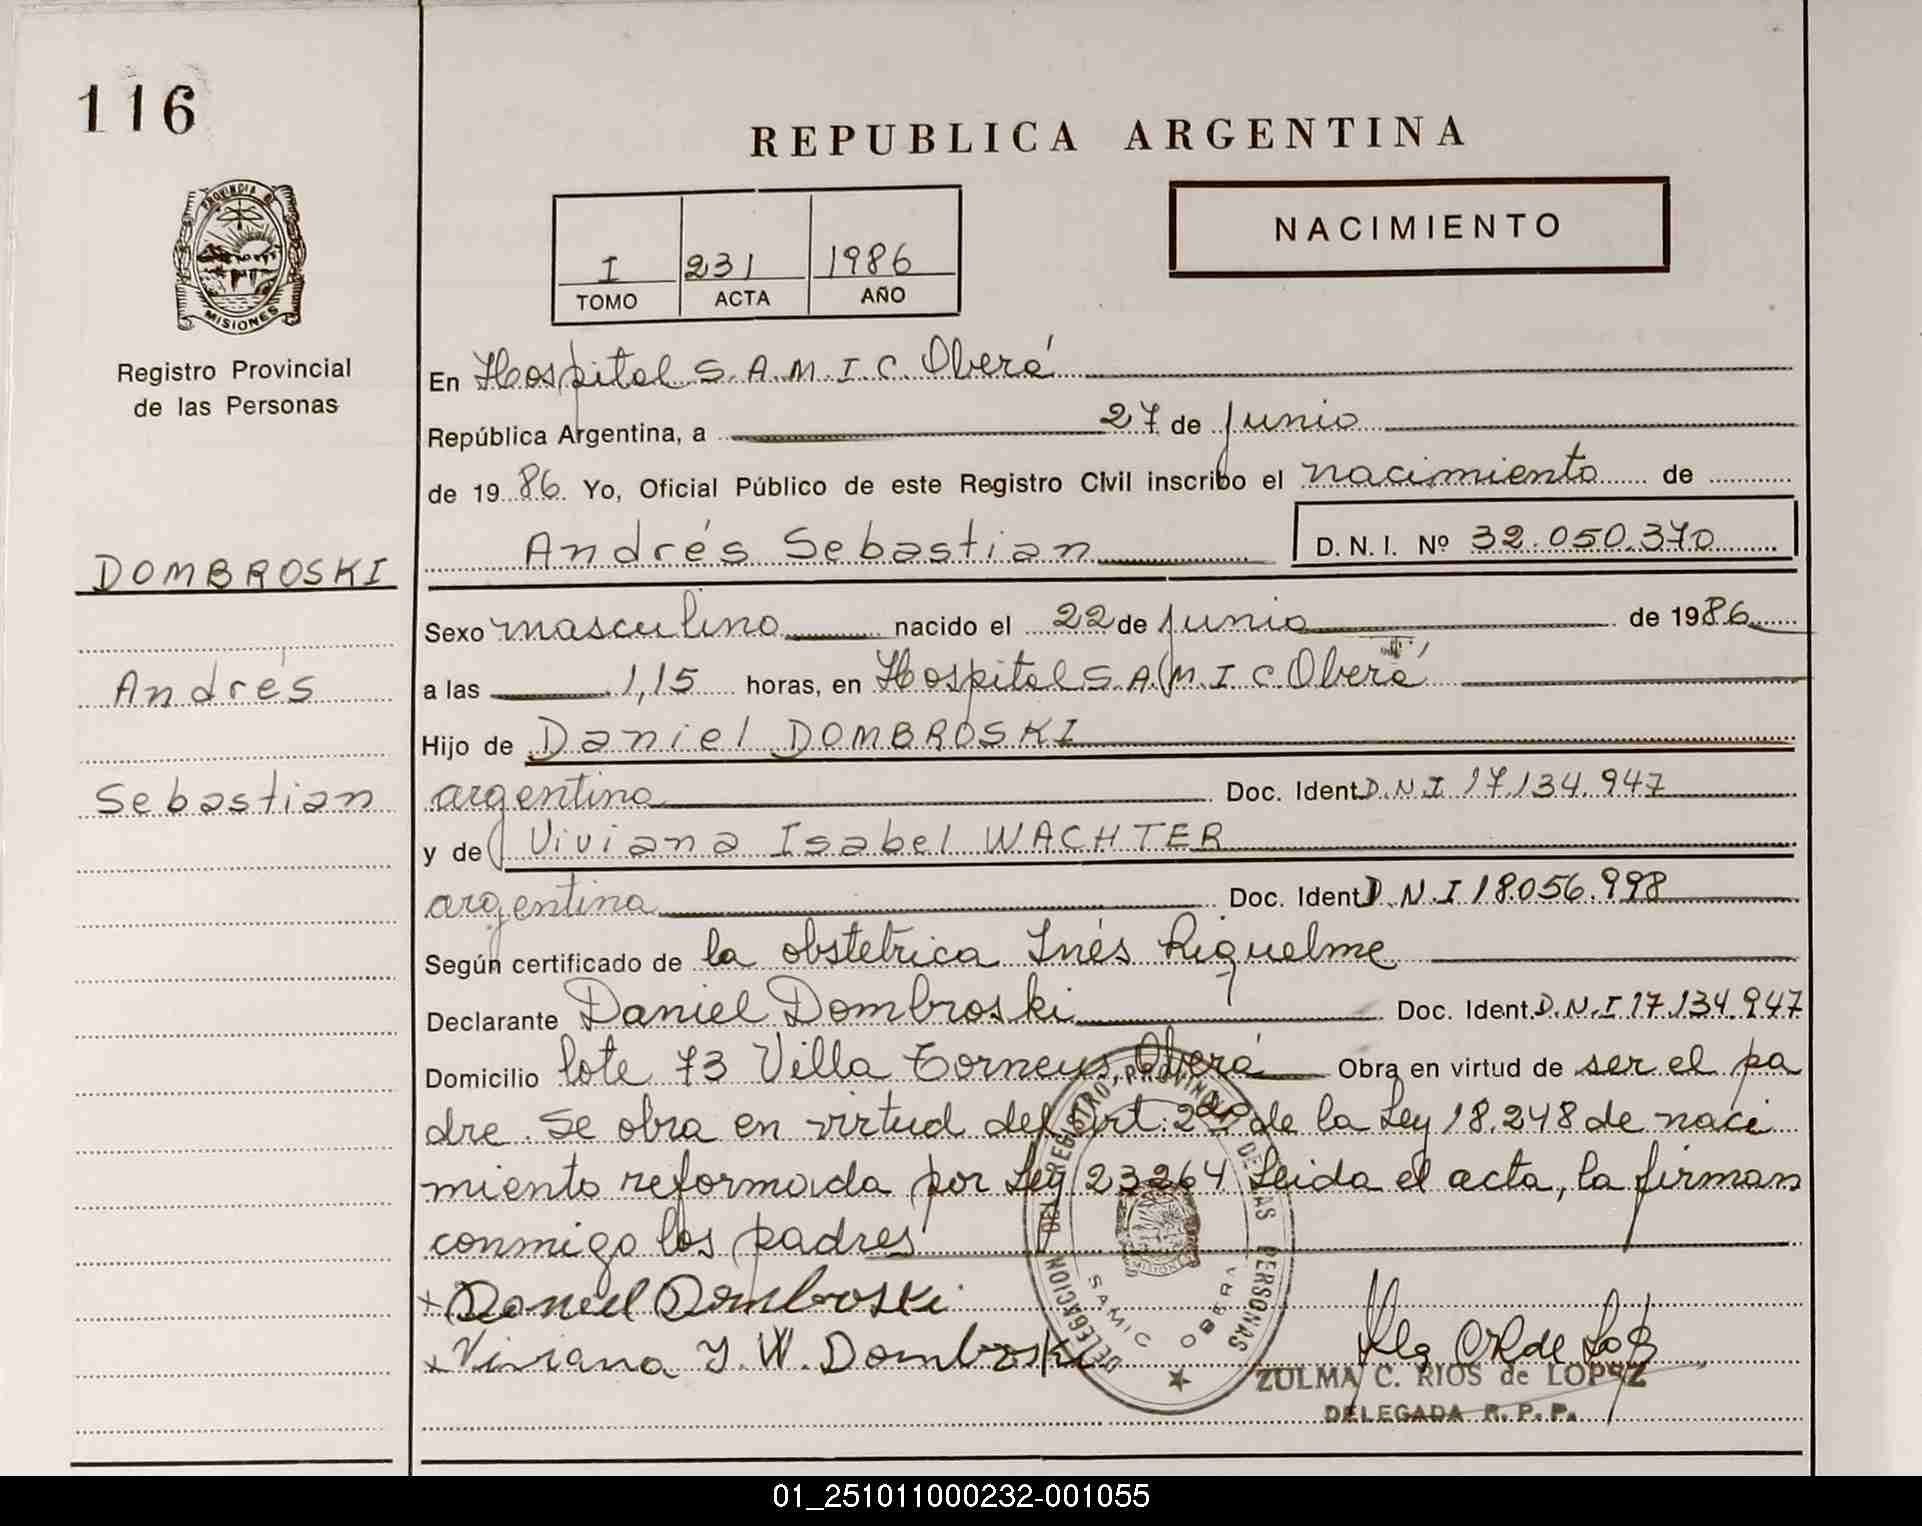 116
REPUBLICA ARGENTINA
PROVINCIA DE MISIONES
NACIMIENTO
I 231 1986
TOMO ACTA AÑO
Registro Provincial
de las Personas
En Hospital S.A.M.I.C. Oberá
República Argentina, a 27 de junio
de 1986. Yo, Oficial Público de este Registro Civil inscribo el nacimiento de
Andrés Sebastian D.N.I. Nº 32.050.370
DOMBROSKI
Andrés
Sebastian
Sexo masculino nacido el 22 de junio de 1986
a las 1,15 horas, en Hospital S.A.M.I.C. Oberá
Hijo de Daniel DOMBROSKI
argentino Doc. Ident. D.N.I 17.134.947
y de Viviana Isabel WACHTER
argentina Doc. Ident. D.N.I 18.056.998
Según certificado de la obstetrica Inés Riquelme
Declarante Daniel Dombroski Doc. Ident. D.N.I 17.134.947
Domicilio lote 73 Villa Torneus, Oberá Obra en virtud de ser el pa
dre. Se obra en virtud del Art. 2do de la Ley 18.248 de naci
miento reformada por Ley 23264 Leida el acta, la firman
conmigo los padres
+ Daniel Dombroski
+ Viviana I. W. Dombroski
DELEGACION DEL REGISTRO PROVINCIAL DE LAS PERSONAS
SAMIC OBERA
MISIONES
ZULMA C. RIOS de LOPEZ
DELEGADA R.P.P.
01_251011000232-001055